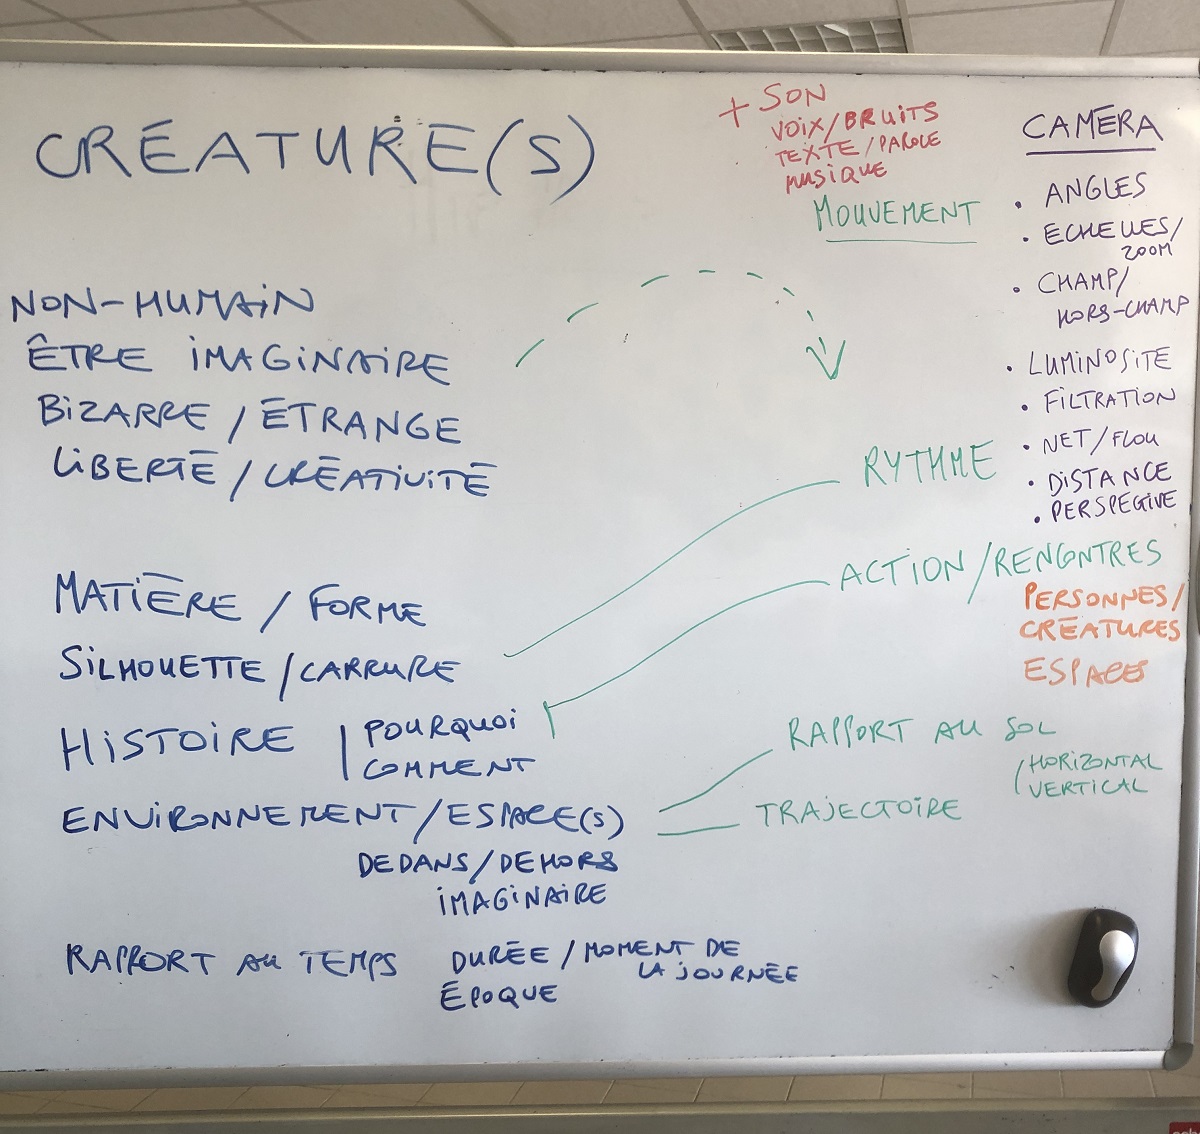 CRÉATURE(S)
NON-HUMAIN
ÊTRE IMAGINAIRE
BIZARRE / ÉTRANGE
LIBERTÉ / CRÉATIVITÉ
MATIÈRE / FORME
SILHOUETTE / CARRURE
HISTOIRE | POURQUOI
COMMENT
ENVIRONNEMENT / ESPACE(S)
DEDANS / DEHORS
IMAGINAIRE
RAPPORT AU TEMPS DURÉE / MOMENT DE
LA JOURNÉE
ÉPOQUE
+ SON
VOIX / BRUITS
TEXTE / PAROLE
MUSIQUE
MOUVEMENT
RYTHME
ACTION / RENCONTRES
PERSONNES /
CRÉATURES
ESPACES
RAPPORT AU SOL
HORIZONTAL
VERTICAL
TRAJECTOIRE
CAMÉRA
• ANGLES
• ECHELLES /
ZOOM
• CHAMP /
HORS-CHAMP
• LUMINOSITÉ
• FILTRATION
• NET / FLOU
• DISTANCE
• PERSPECTIVE